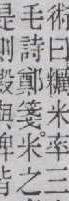 術曰糲米率三
毛詩鄭箋米之
是則毇與粺皆